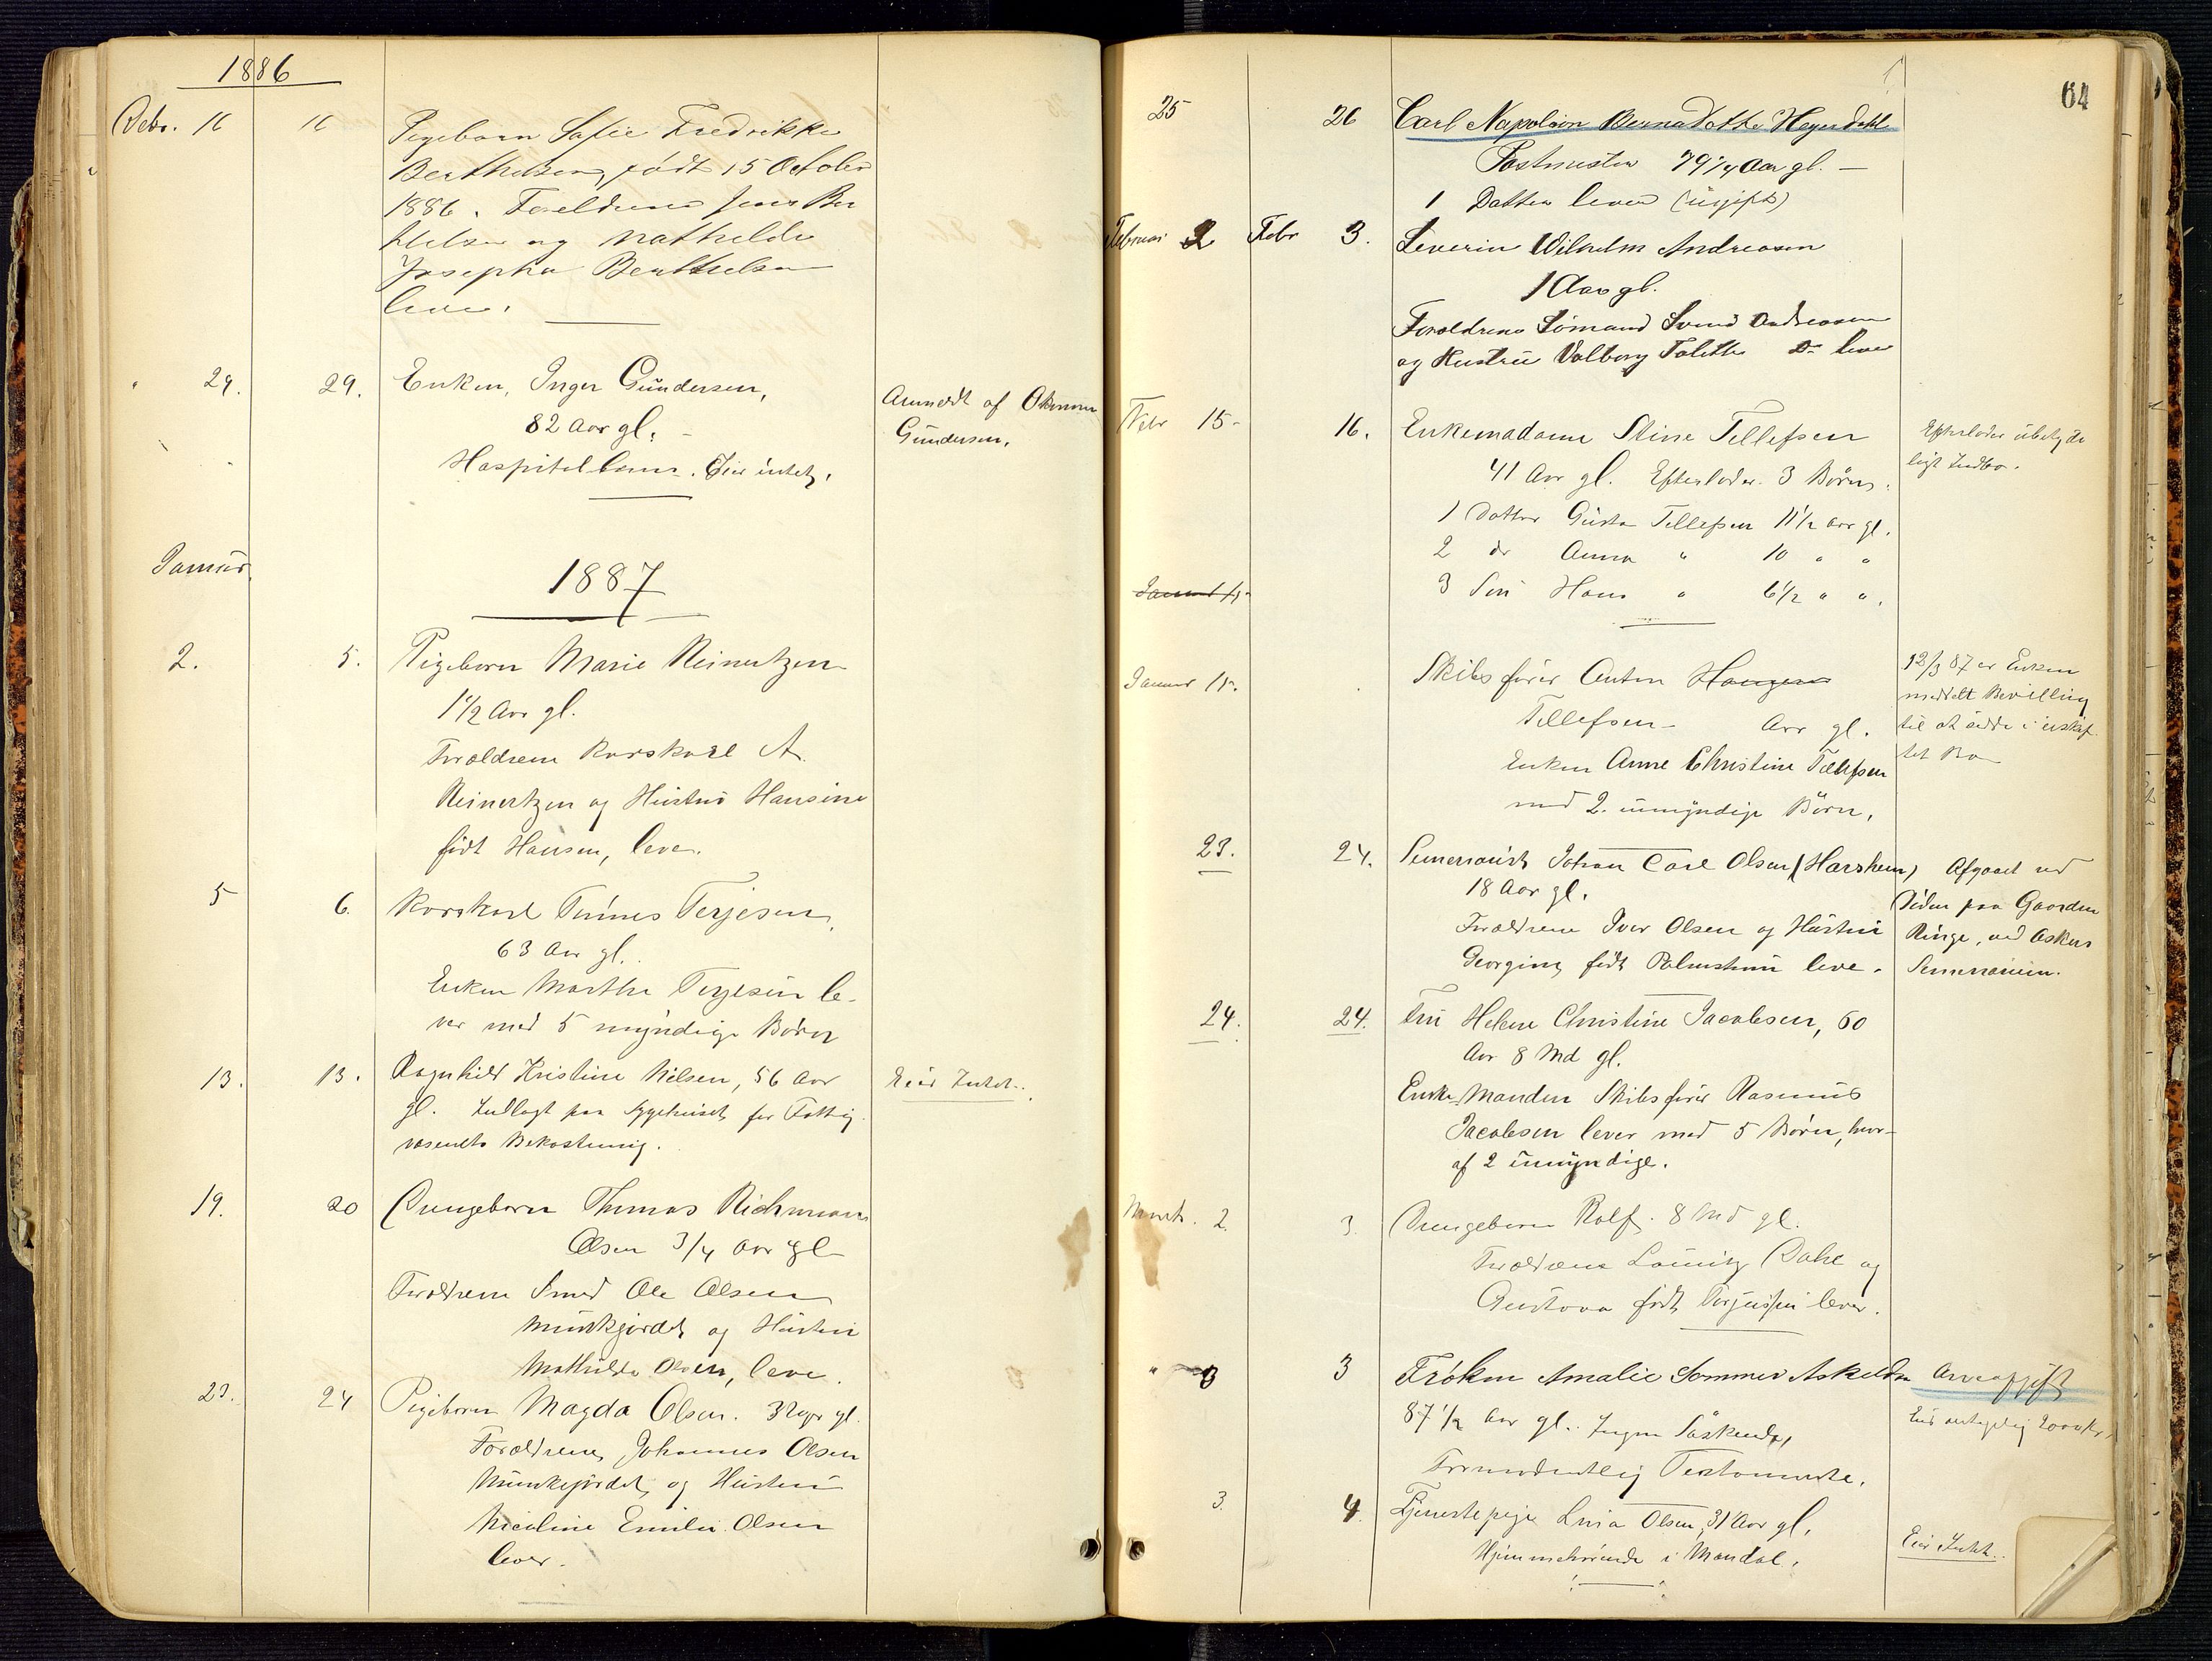 1886
Debr. 16 16 Pigebarn Safie Fredrikke
Berthelsen, født 15 October
1886. Foreldrene Jens Ber
thelsen og Mathilde
Josepha Berthelsen
leve.
" 29. 29. Enken, Inger Gundersen, Anmeldt af
82 Aar gl. Gundersen.
Hospitalslem. Eier intet.
Januar 1887
2. 5. Pigebarn Marie Reinertzen
1 1/2 Aar gl.
Forældrene Karskarl A.
Reinertzen og Hustru Hansine
født Hansen, leve.
5 6. Karskarl Tønnes Terjesen,
63 Aar gl.
Enken Marthe Terjesen le-
ver med 5 myndige Børn
13. 13. Ragnhild Kristine Nilsen, 56 Aar Eier Intet.
gl. Indlagt paa Sygehuset for Fattig
væsenets Bekostning.
19. 20 Drengebarn Thomas Richmann
Olsen 3/4 Aar gl
Forældrene Smed Ole Olsen
Munkgjordet og Hustru
Mathilde Olsen, leve.
23. 24 Pigebarn Magda Olsen. 3 Uger gl.
Forældrene Johannes Olsen
Munkejordet og Hustru
Nicoline Emilie Olsen
lever.
64
25 26 Carl Napoleon Bernadotte Heyerdahl
Postmester 79 1/4 Aar gl. —
1 Datter lever (ugift)
Februar 2 Febr 3. Severin Wilhelm Andreasen
1 Aar gl.
Forældrene Sømand Svend Andreasen
og Hustru Valborg Talette Do leve
Febr 15- 16. Enkemadame Stine Tellefsen Efterlader ubetyde
41 Aar gl. Efterlader 3 Børn. ligt Indbo.
1 Datter Gusta Tellefsen 11 1/2 Aar gl.
2 do Anna " 10 " "
Januar 15
3 Søn Hans " 6 1/2 " ".
Januar 15. Skibsfører Anton Hangen 12/3 87 er Enken
Tellefsen Aar gl. meddelt Bevilling
til at sidde i uskif
Enken Anne Christine Tellefsen tet Bo
med 2. umyndige Børn.
23. 24. Seminarist Johan Carl Olsen (Harsheim) Afgaaet ved
18 Aar gl. Døden paa Gaarden
Forældrene Iver Olsen og Hustru Ringe, ved Askers
Georgine født Palmstrøm leve. Seminarium.
24. 24. Fru Helene Christine Jacobsen, 60
Aar 8 Md gl.
Enke Manden Skibsfører Rasmus
Jacobsen lever med 5 Børn, hvor-
af 2 umyndige.
Marts. 2. 3. Drengebarn Rolf. 8 Md gl.
Forældrene Lauritz Dahl og
Gustava født Torjussen lever.
" 3 3 Frøken Amalie Sommer Arveafgift
87 1/2 Aar gl. Ingen Søskende,
Formodentlig Testamente.
3. 4. Tjenestepige Lina Olsen, 31 Aar gl,
Hjemmehørende i Mandal. Eier Intet.